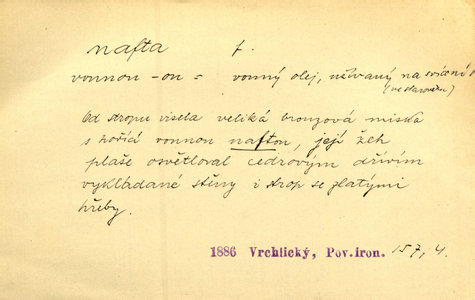 nafta f.
vonnou -ou = vonný olej, užívaný na svícení
(ve starověku)
Od stropu visela veliká bronzová miska
s hořící vonnou naftou, její žeh
plaše osvětloval cedrovým dřívím
vykládané stěny i strop se zlatými
hřeby.
1886 Vrchlický, Pov.iron. 157, 4.